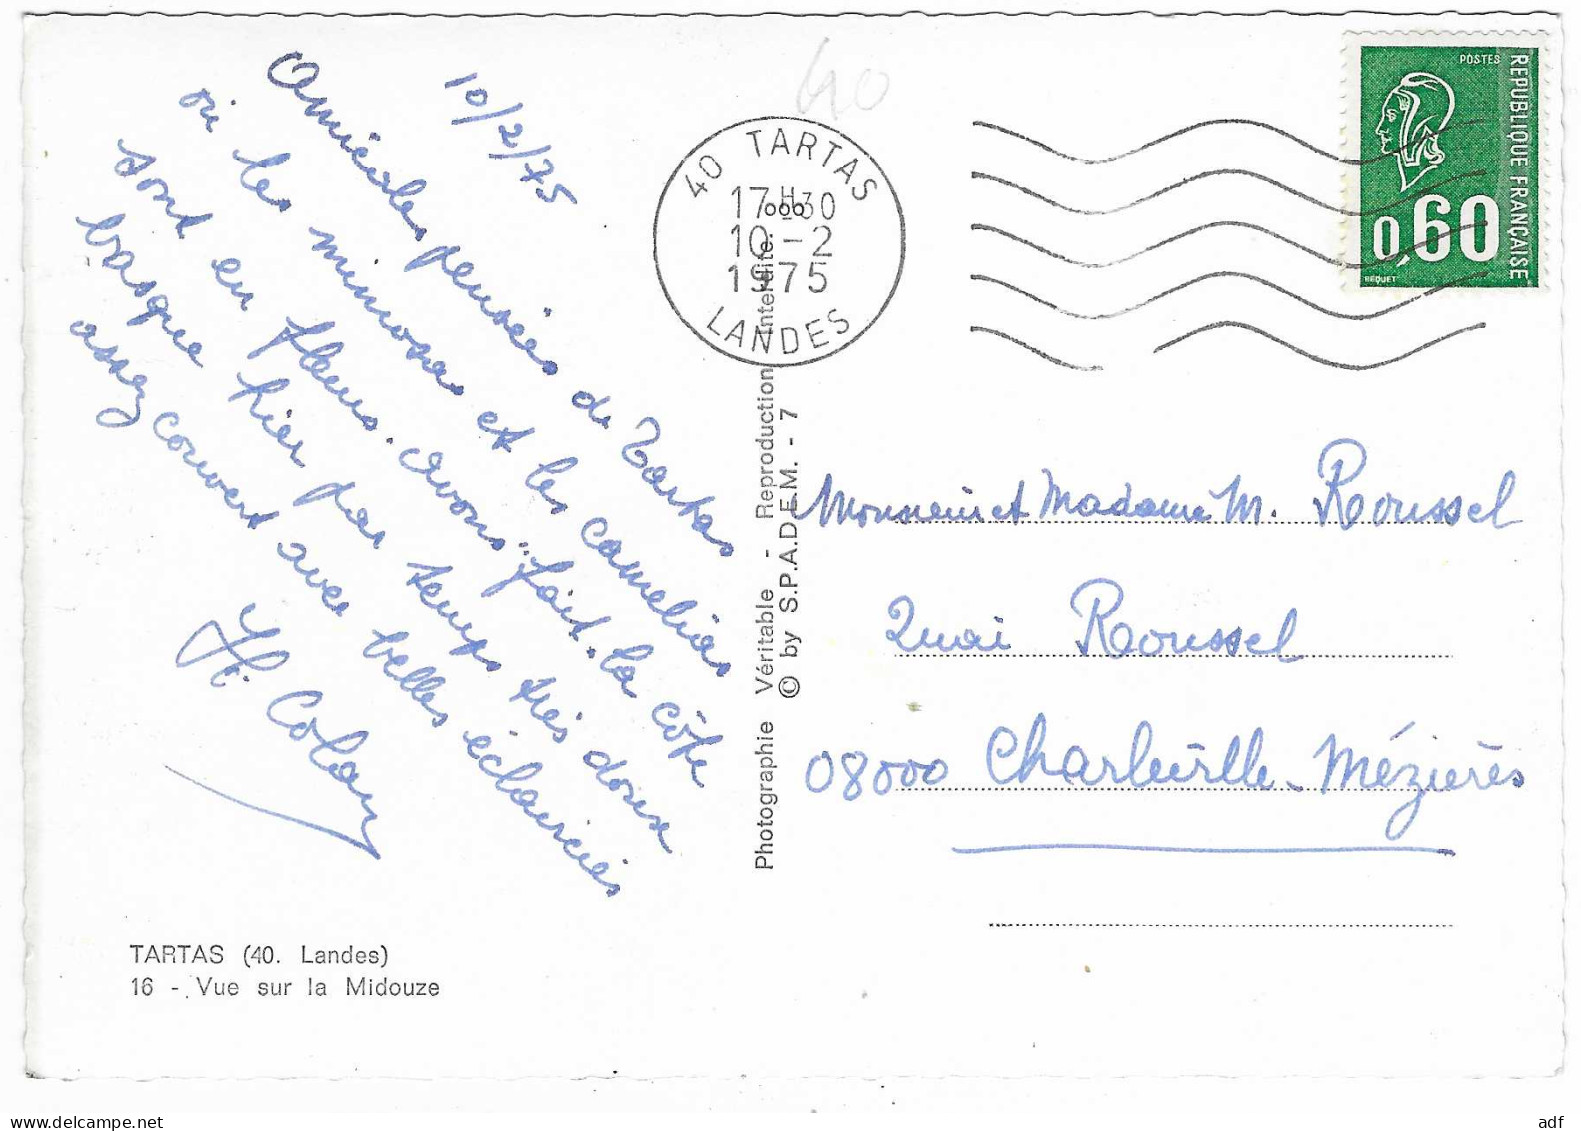 10/2/75
Amicales pensées de Tartas
où les mimosas et les camélias
sont en fleurs. Avons "fait" la côte
basque hier par temps très doux
assez couvert avec belles éclaircies
Colan
TARTAS (40. Landes)
16 - Vue sur la Midouze
Photographie Véritable - Reproduction Interdite.
© by S.P.A.D.E.M. - 7
40
40 TARTAS
17H30
10-2
1975
LANDES
POSTES
REPUBLIQUE FRANÇAISE
0,60
BEQUET
Monsieur et Madame M. Roussel
Quai Roussel
08000 Charleville-Mézières
www.delcampe.net
adf